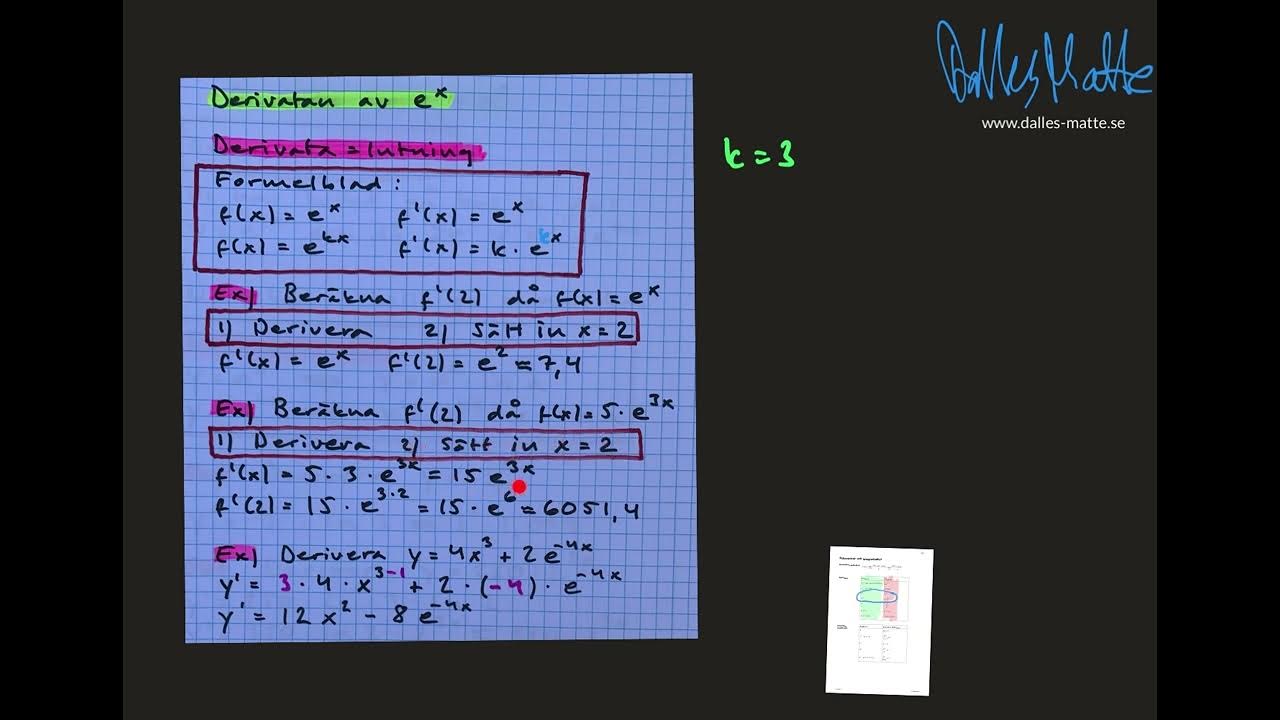 Dalles Matte
www.dalles-matte.se
k = 3
Derivatan av e^x
Derivata = lutning
Formelblad:
f(x) = e^x f'(x) = e^x
f(x) = e^kx f'(x) = k · e^kx
Ex) Beräkna f'(2) då f(x) = e^x
1) Derivera 2) Sätt in x = 2
f'(x) = e^x f'(2) = e^2 ≈ 7,4
Ex) Beräkna f'(2) då f(x) = 5 · e^3x
1) Derivera 2) Sätt in x = 2
f'(x) = 5 · 3 · e^3x = 15 e^3x
f'(2) = 15 · e^3·2 = 15 · e^6 ≈ 6051,4
Ex) Derivera y = 4x^3 + 2e^-4x
y' = 3 · 4 · x^3-1 + 2 (-4) · e^-4x
y' = 12x^2 - 8e^-4x